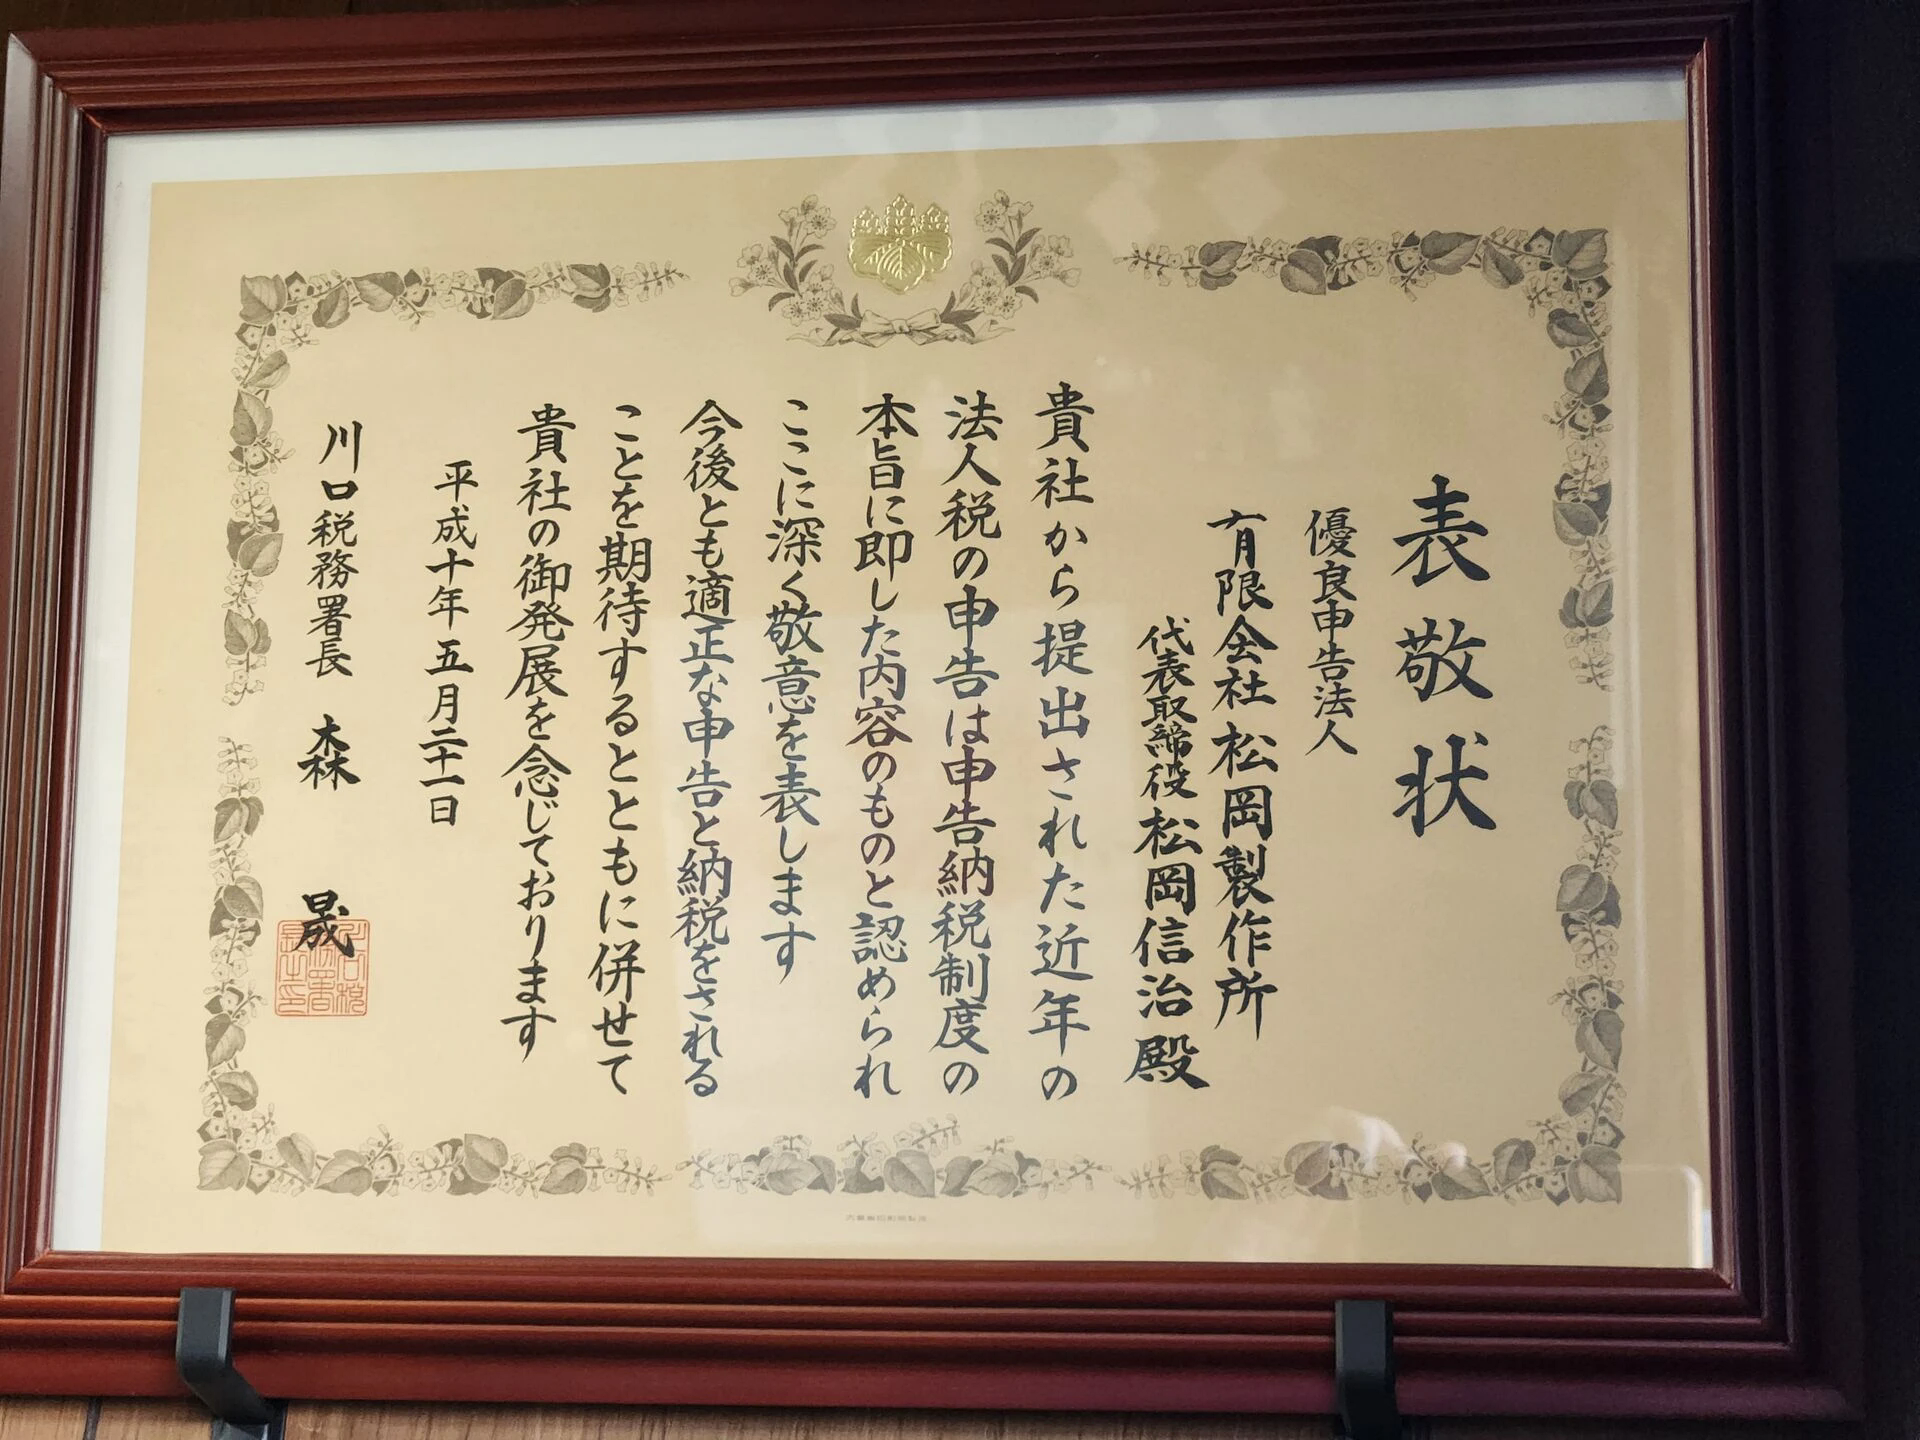 表敬状
優良申告法人
有限会社松岡製作所
代表取締役松岡信治殿
貴社から提出された近年の
法人税の申告は申告納税制度の
本旨に即した内容のものと認められ
ここに深く敬意を表します
今後とも適正な申告と納税をされる
ことを期待するとともに併せて
貴社の御発展を念じております
平成十年五月二十一日
川口税務署長 森 晟